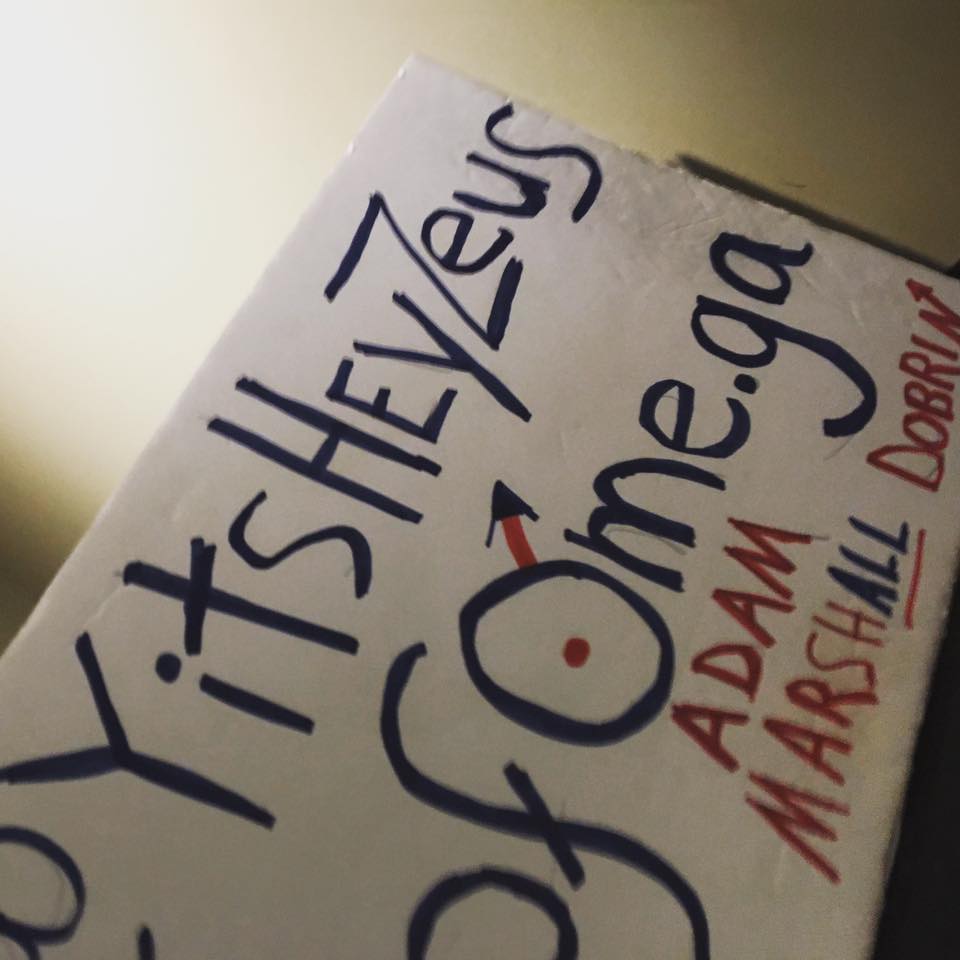 YitSHEYZeus
of Ome.ga
ADAM
MARSHALL DOBRIN